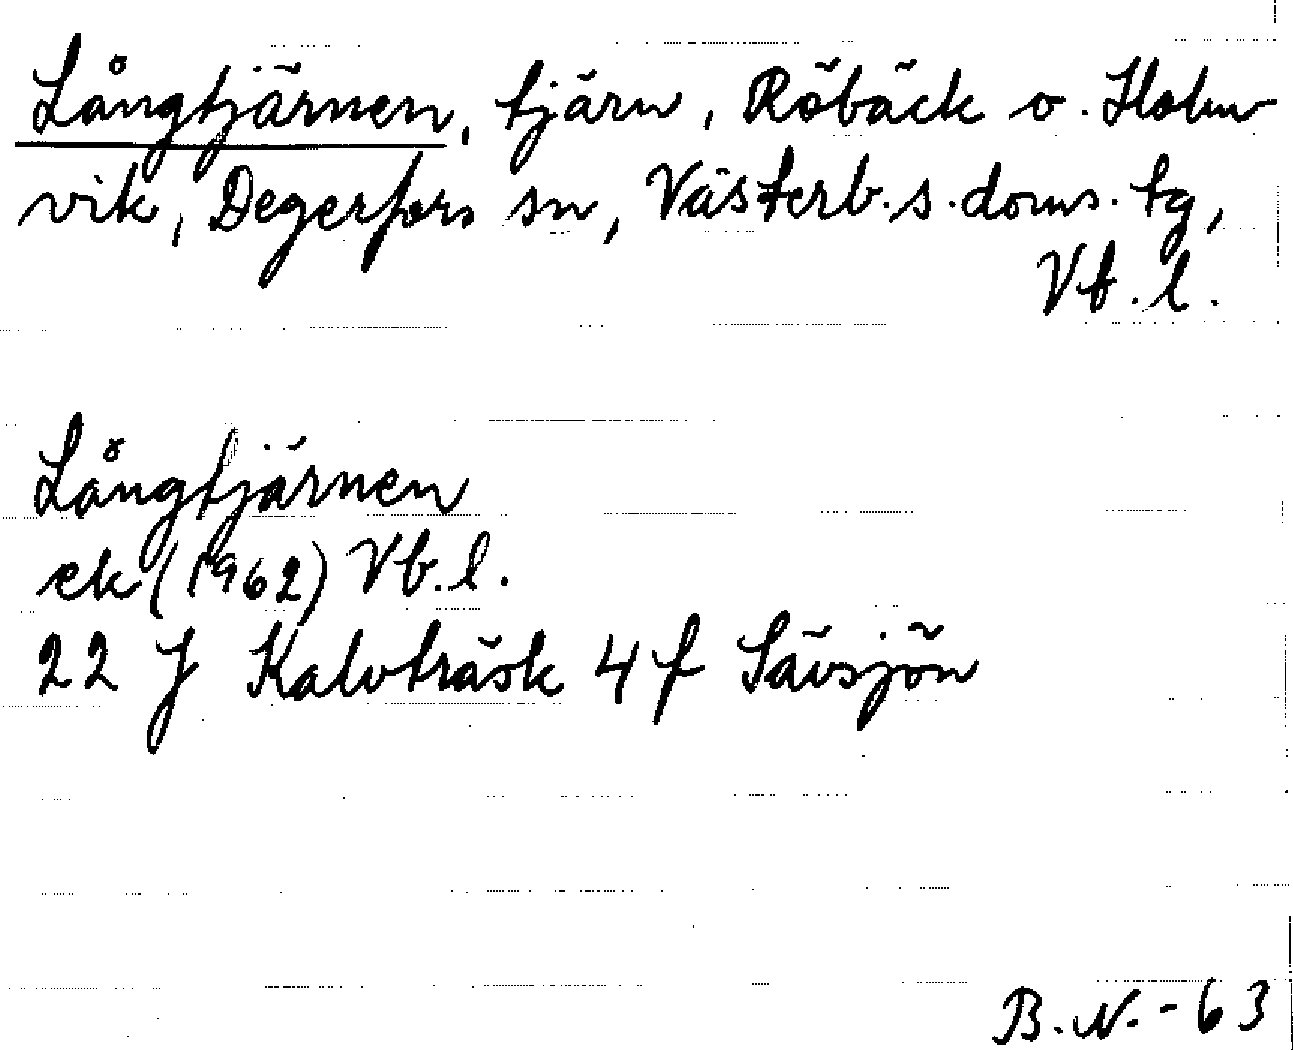 Långtjärnen, tjärn, Röbäck o. Holm-
vik, Degerfors sn, Västerb. s. doms. tg,
Vb. l.
Långtjärnen
ek (1962) Vb. l.
22 J Kalvträsk 4 f Sävsjön
B. N. - 63